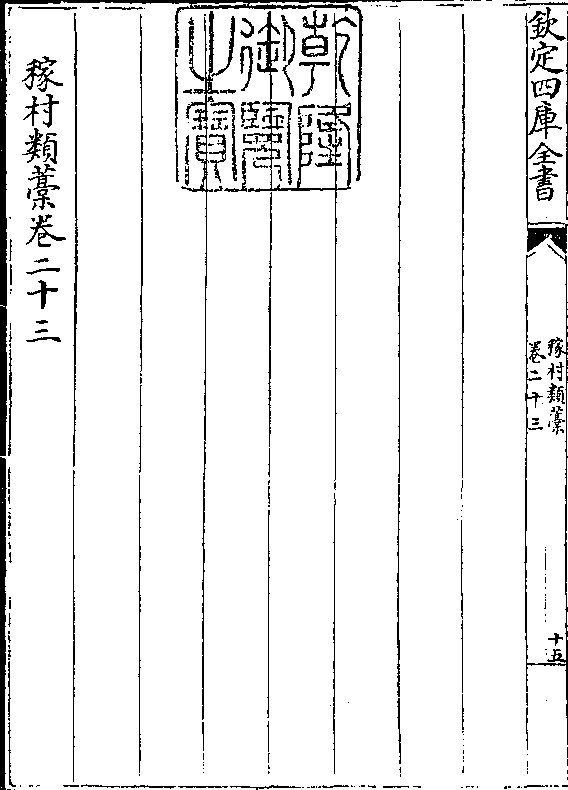 欽定四庫全書
稼村類藁
卷二十三
十五
乾隆
御覽
之寶
稼村類藁卷二十三